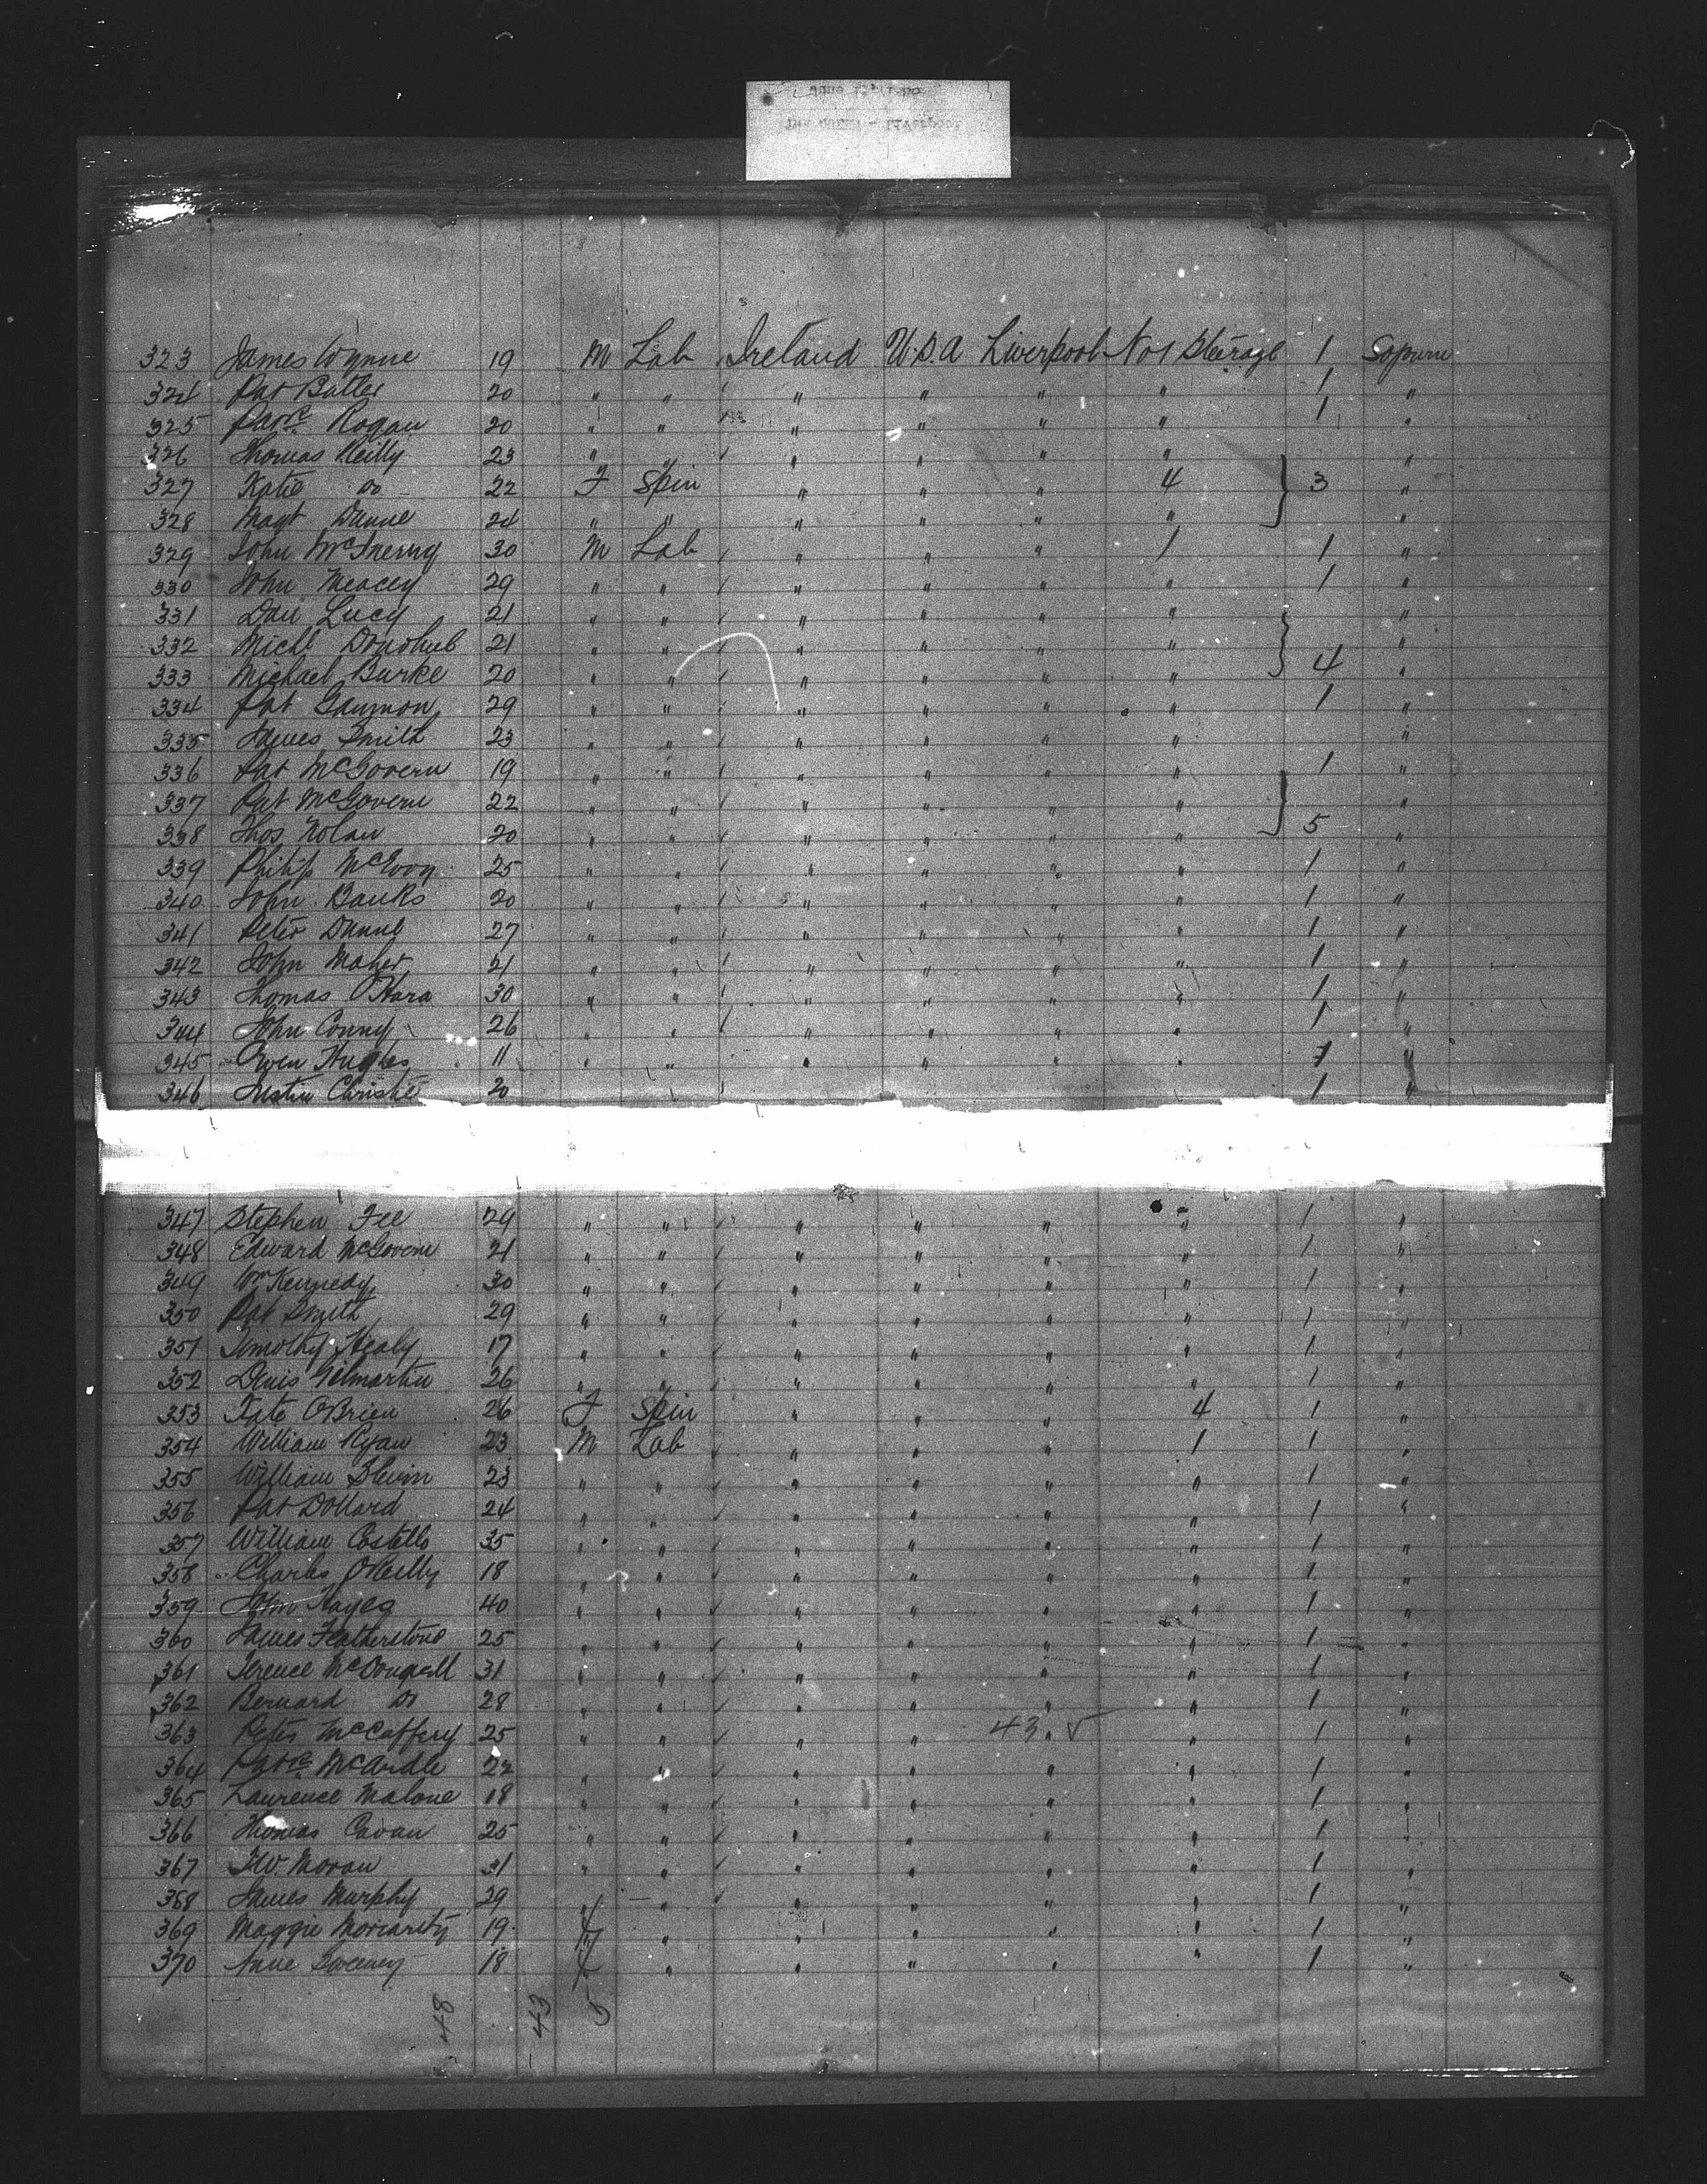 323 James Wynne 19 M Lab Ireland U.S.A Liverpool No 1 Steerage 1 Sojourn
324 Pat Butler 20 " " " " " " 1 "
325 Patrc Rogan 20 " " " " " " 1 "
326 Thomas Reilly 23 " " " " " " "
327 Katie do 22 F Spin " " " 4 3 "
328 Magt Dunne 24 " " " " " " "
329 John McInerny 30 M Lab " " " 1 1 "
330 John Meacey 29 " " " " " " 1 "
331 Dan Lucy 21 " " " " " " "
332 Michl Donohue 21 " " " " " " "
333 Michael Burke 20 " " " " " " 4 "
334 Pat Gaumon 29 " " " " " " 1 "
335 James Smith 23 " " " " " " "
336 Pat McGovern 19 " " " " " " 1 "
337 Pat McGovern 22 " " " " " " "
338 Thos Nolan 20 " " " " " " 5 "
339 Philip McEvoy 25 " " " " " " 1 "
340 John Banks 20 " " " " " " 1 "
341 Peter Dunne 27 " " " " " " 1 "
342 John Maher 21 " " " " " " 1 "
343 Thomas O'Hara 30 " " " " " " 1 "
344 John Conny 26 " " " " " " 1 "
345 Owen Hughes 11 " " " " " " 1 "
346 Christie 20 1 "
347 Stephen Fee 29 " " " " " " 1 "
348 Edward McGovern 21 " " " " " " 1 "
349 Wm Kennedy 30 " " " " " " 1 "
350 Pat Smith 29 " " " " " " 1 "
351 Timothy Healy 17 " " " " " " 1 "
352 Denis Gilmartin 26 " " " " " " 1 "
353 Kate O'Brien 26 F Spin " " " 4 1 "
354 William Ryan 23 M Lab " " " 1 1 "
355 William 23 " " " " " " 1 "
356 Pat Dollard 24 " " " " " " 1 "
357 William Costello 35 " " " " " " 1 "
358 Charles O'Reilly 18 " " " " " " 1 "
359 John Hayes 40 " " " " " " 1 "
360 James Featherstone 25 " " " " " " 1 "
361 Terence McDougall 31 " " " " " " 1 "
362 Bernard do 28 " " " " " " 1 "
363 Peter McCaffery 25 " " " " 43 " " 1 "
364 Patrc McArdle 22 " " " " " " 1 "
365 Laurence Malone 18 " " " " " " 1 "
366 Thomas Cavan 25 " " " " " " 1 "
367 T.W. Moran 31 " " " " " " 1 "
368 James Murphy 29 " " " " " 1 "
369 Maggie Moriarity 19 F " " " " " 1 "
370 Anne Sweeney 18 F " " " " " 1 "
48 43 5